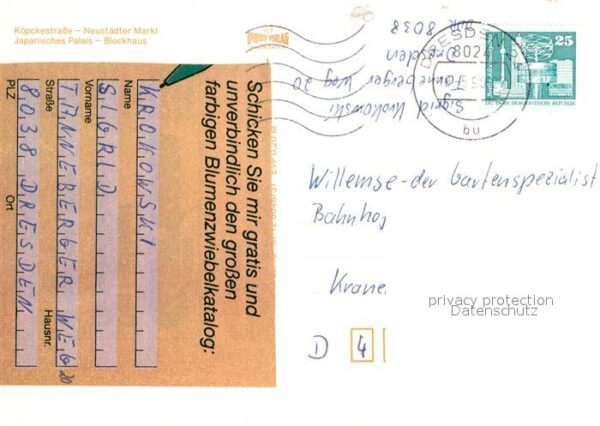 Köpckestraße – Neustädter Markt
Japanisches Palais – Blockhaus
VERLAG
Sigrid Krokowski
Tanneberger Weg 20
Dresden
DDR 8038
DRESDEN
8024
bu
25
DEUTSCHE DEMOKRATISCHE REPUBLIK
Schicken Sie mir gratis und
unverbindlich den großen
farbigen Blumenzwiebelkatalog:
KROKOWSKI
Name
SIGRID
Vorname
TANNEBERGER WEG 20
Straße Hausnr.
8038 DRESDEN
PLZ Ort
Willemse-der Gartenspezialist
Bahnhof
Krane
D 4
privacy protection
Datenschutz